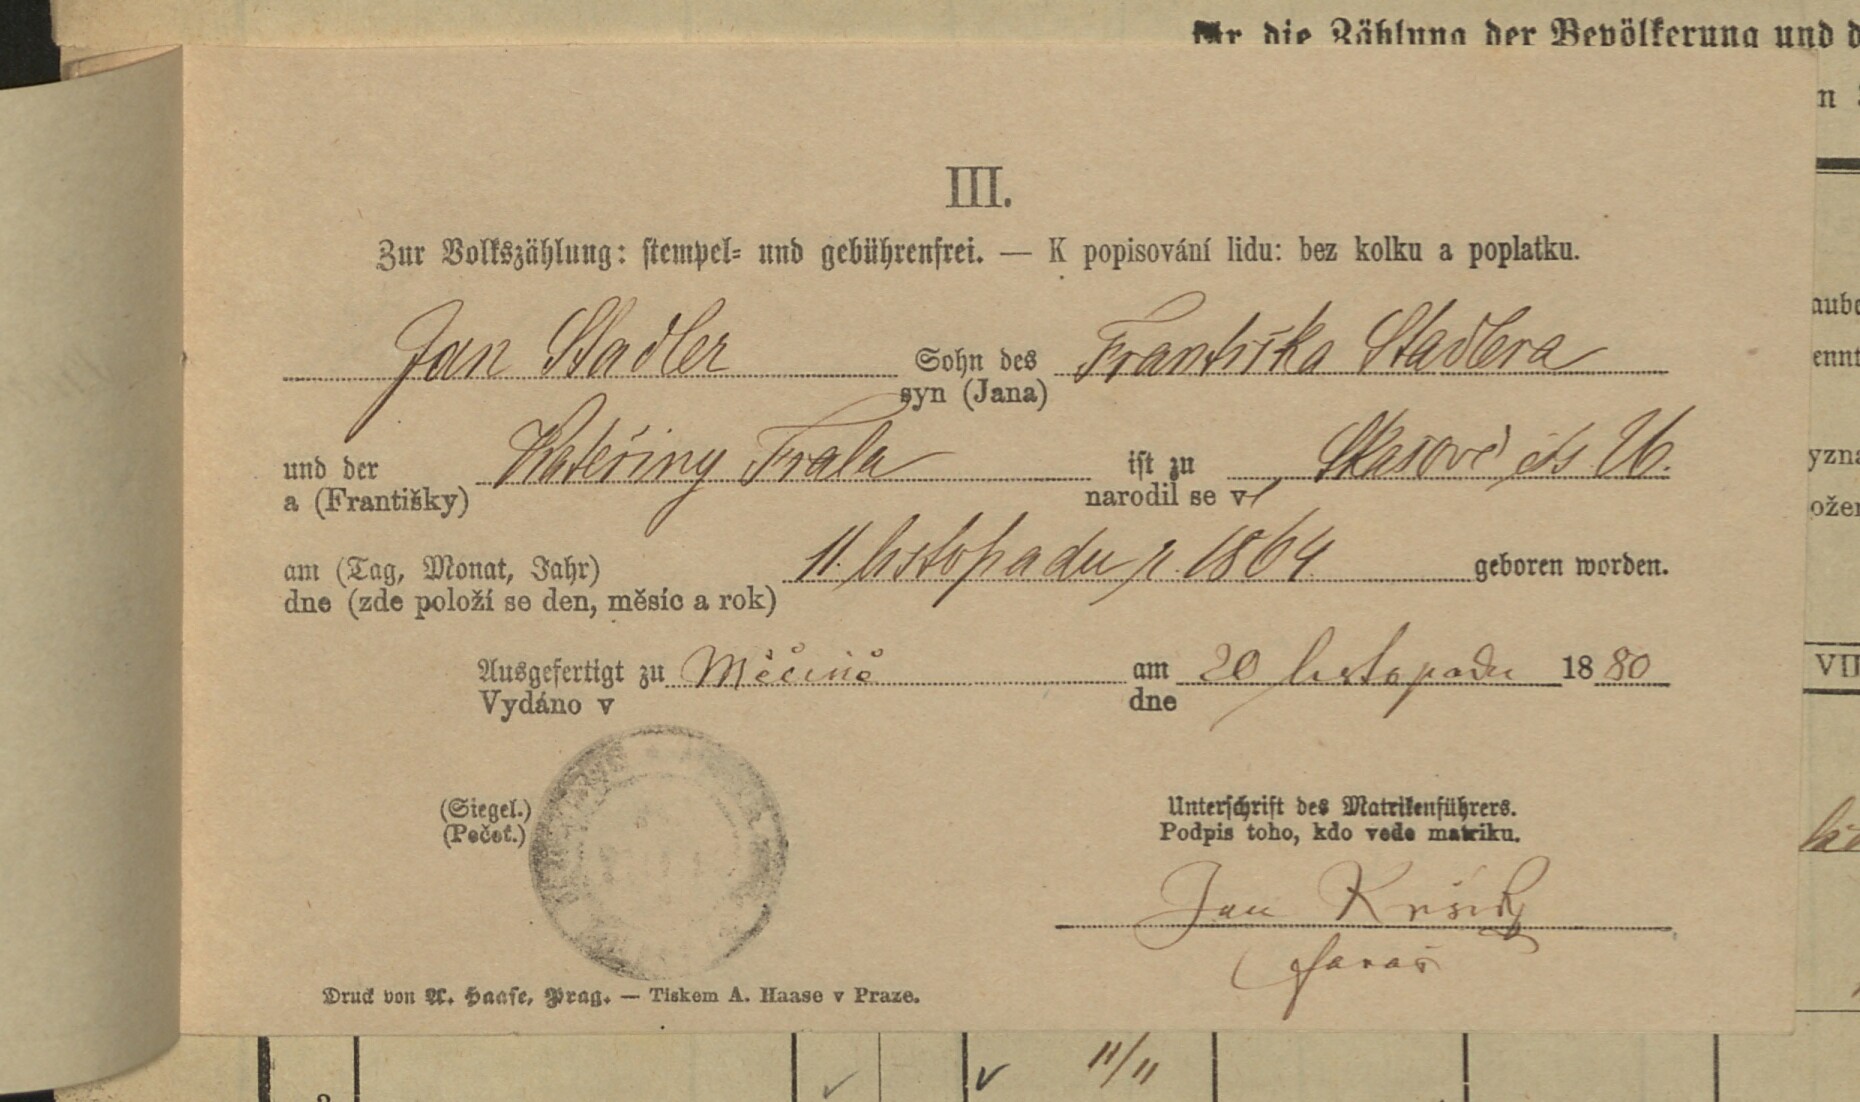 für die Zählung der Bevölkerung und d
III.
Zur Volkszählung: stempel- und gebührenfrei. — K popisování lidu: bez kolku a poplatku.
Jan Stadler Sohn des Františka Stadlera
syn (Jana)
und der Kateřiny Frala ist zu Skašově čís 26.
a (Františky) narodil se v
am (Tag, Monat, Jahr) 11. listopadu r. 1864 geboren worden.
dne (zde položí se den, měsíc a rok)
Ausgefertigt zu Měčíně am 20 listopadu 1880
Vydáno v dne
(Siegel.) Unterschrift des Matrikenführers.
(Pečeť.) Podpis toho, kdo vede matriku.
Jan
farař
Druck von A. Haase, Prag. — Tiskem A. Haase v Praze.
VII
11/11